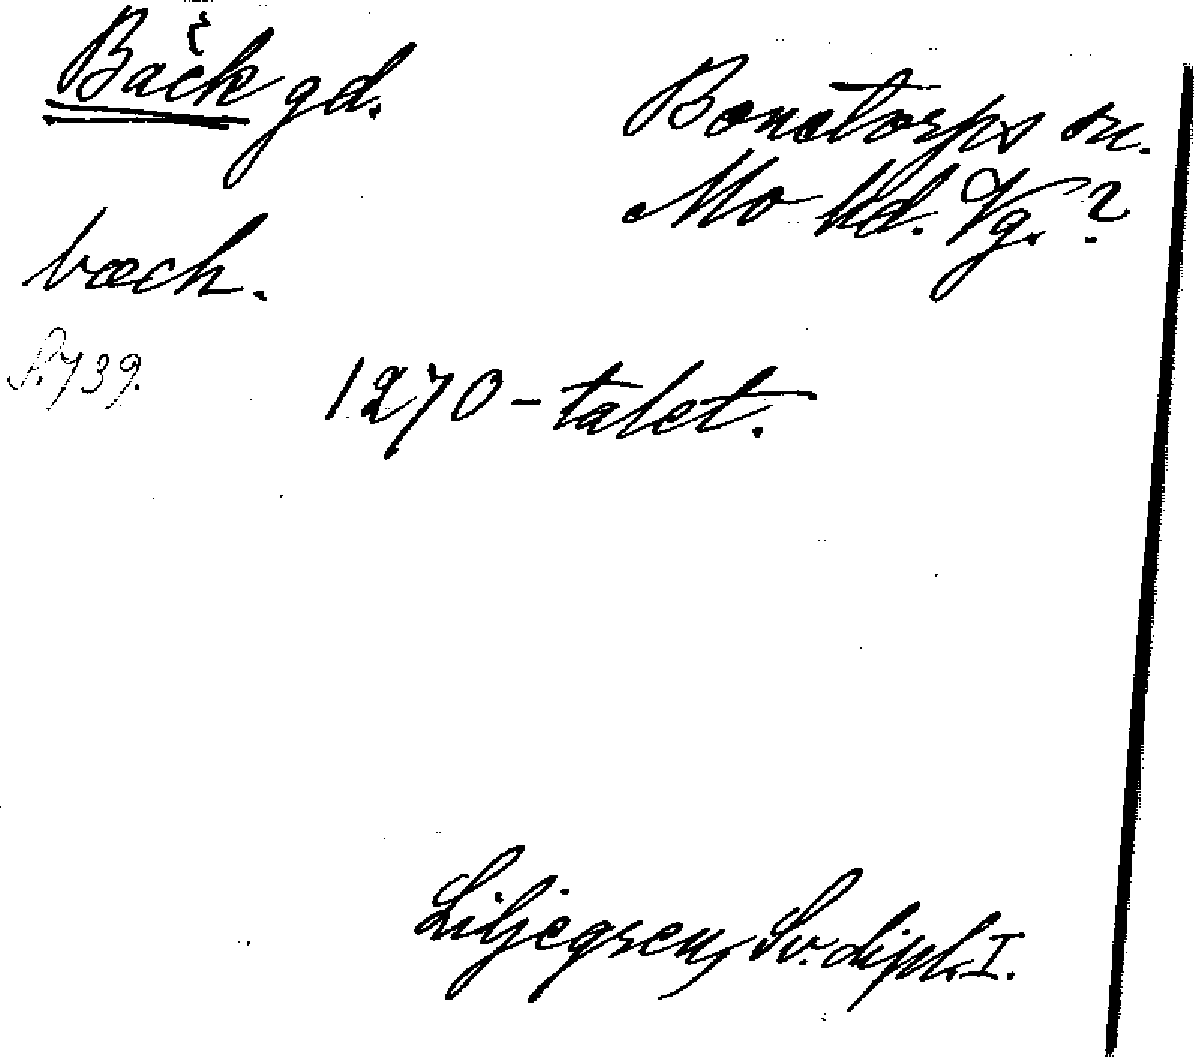 Bäck gd.
Bonstorps sn.
Mo hd. Vg.?
bæck.
S. 739.
1270-talet.
Liljegren, Sv. dipl. I.